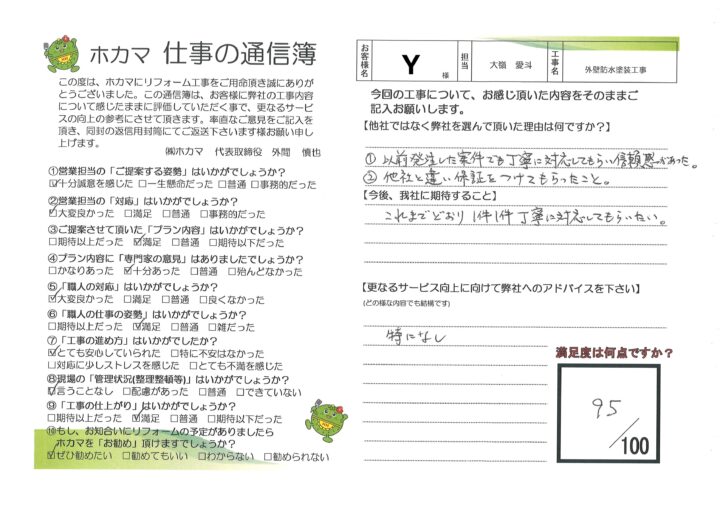 ホカマ 仕事の通信簿
この度は、ホカマにリフォーム工事をご用命頂き誠にありが
とうございました。この通信簿は、お客様に弊社の工事内容
について感じたままに評価していただく事で、更なるサービ
スの向上の参考にさせて頂きます。率直なご意見をご記入を
頂き、同封の返信用封筒にてご返送下さいます様お願い申し
上げます。
㈱ホカマ 代表取締役 外間 慎也
①営業担当の「ご提案する姿勢」はいかがでしょうか?
☑十分誠意を感じた □一生懸命だった □普通 □事務的だった
②営業担当の「対応」はいかがでしょうか?
☑大変良かった □満足 □普通 □事務的だった
③ご提案させて頂いた「プラン内容」はいかがでしょうか?
□期待以上だった ☑満足 □普通 □期待以下だった
④プラン内容に「専門家の意見」はありましたでしょうか?
□かなりあった ☑十分あった □普通 □殆んどなかった
⑤「職人の対応」はいかがでしょうか?
☑大変良かった □満足 □普通 □良くなかった
⑥「職人の仕事の姿勢」はいかがでしょうか?
□期待以上だった ☑満足 □普通 □雑だった
⑦「工事の進め方」はいかがでしたか?
☑とても安心していられた □特に不安はなかった
□対応に少しストレスを感じた □とても不満を感じた
⑧現場の「管理状況(整理整頓等)」はいかがでしょうか?
☑言うことなし □配慮があった □普通 □できていない
⑨「工事の仕上がり」はいかがでしょうか?
□期待以上だった ☑満足 □普通 □期待以下だった
⑩もし、お知合いにリフォームの予定がありましたら
ホカマを「お勧め」頂けますでしょうか?
☑ぜひ勧めたい □勧めてもいい □わからない □勧められない
お客様名 Y 様 担当 大嶺 愛斗 工事名 外壁防水塗装工事
今回の工事について、お感じ頂いた内容をそのままご
記入お願いします。
【他社ではなく弊社を選んで頂いた理由は何ですか?】
①以前発注した案件でも丁寧に対応してもらい信頼感があった。
②他社と違い保証をつけてもらったこと。
【今後、我社に期待すること】
これまでどおり1件1件丁寧に対応してもらいたい。
【更なるサービス向上に向けて弊社へのアドバイスを下さい】
(どの様な内容でも結構です)
特になし
満足度は何点ですか?
95
/100